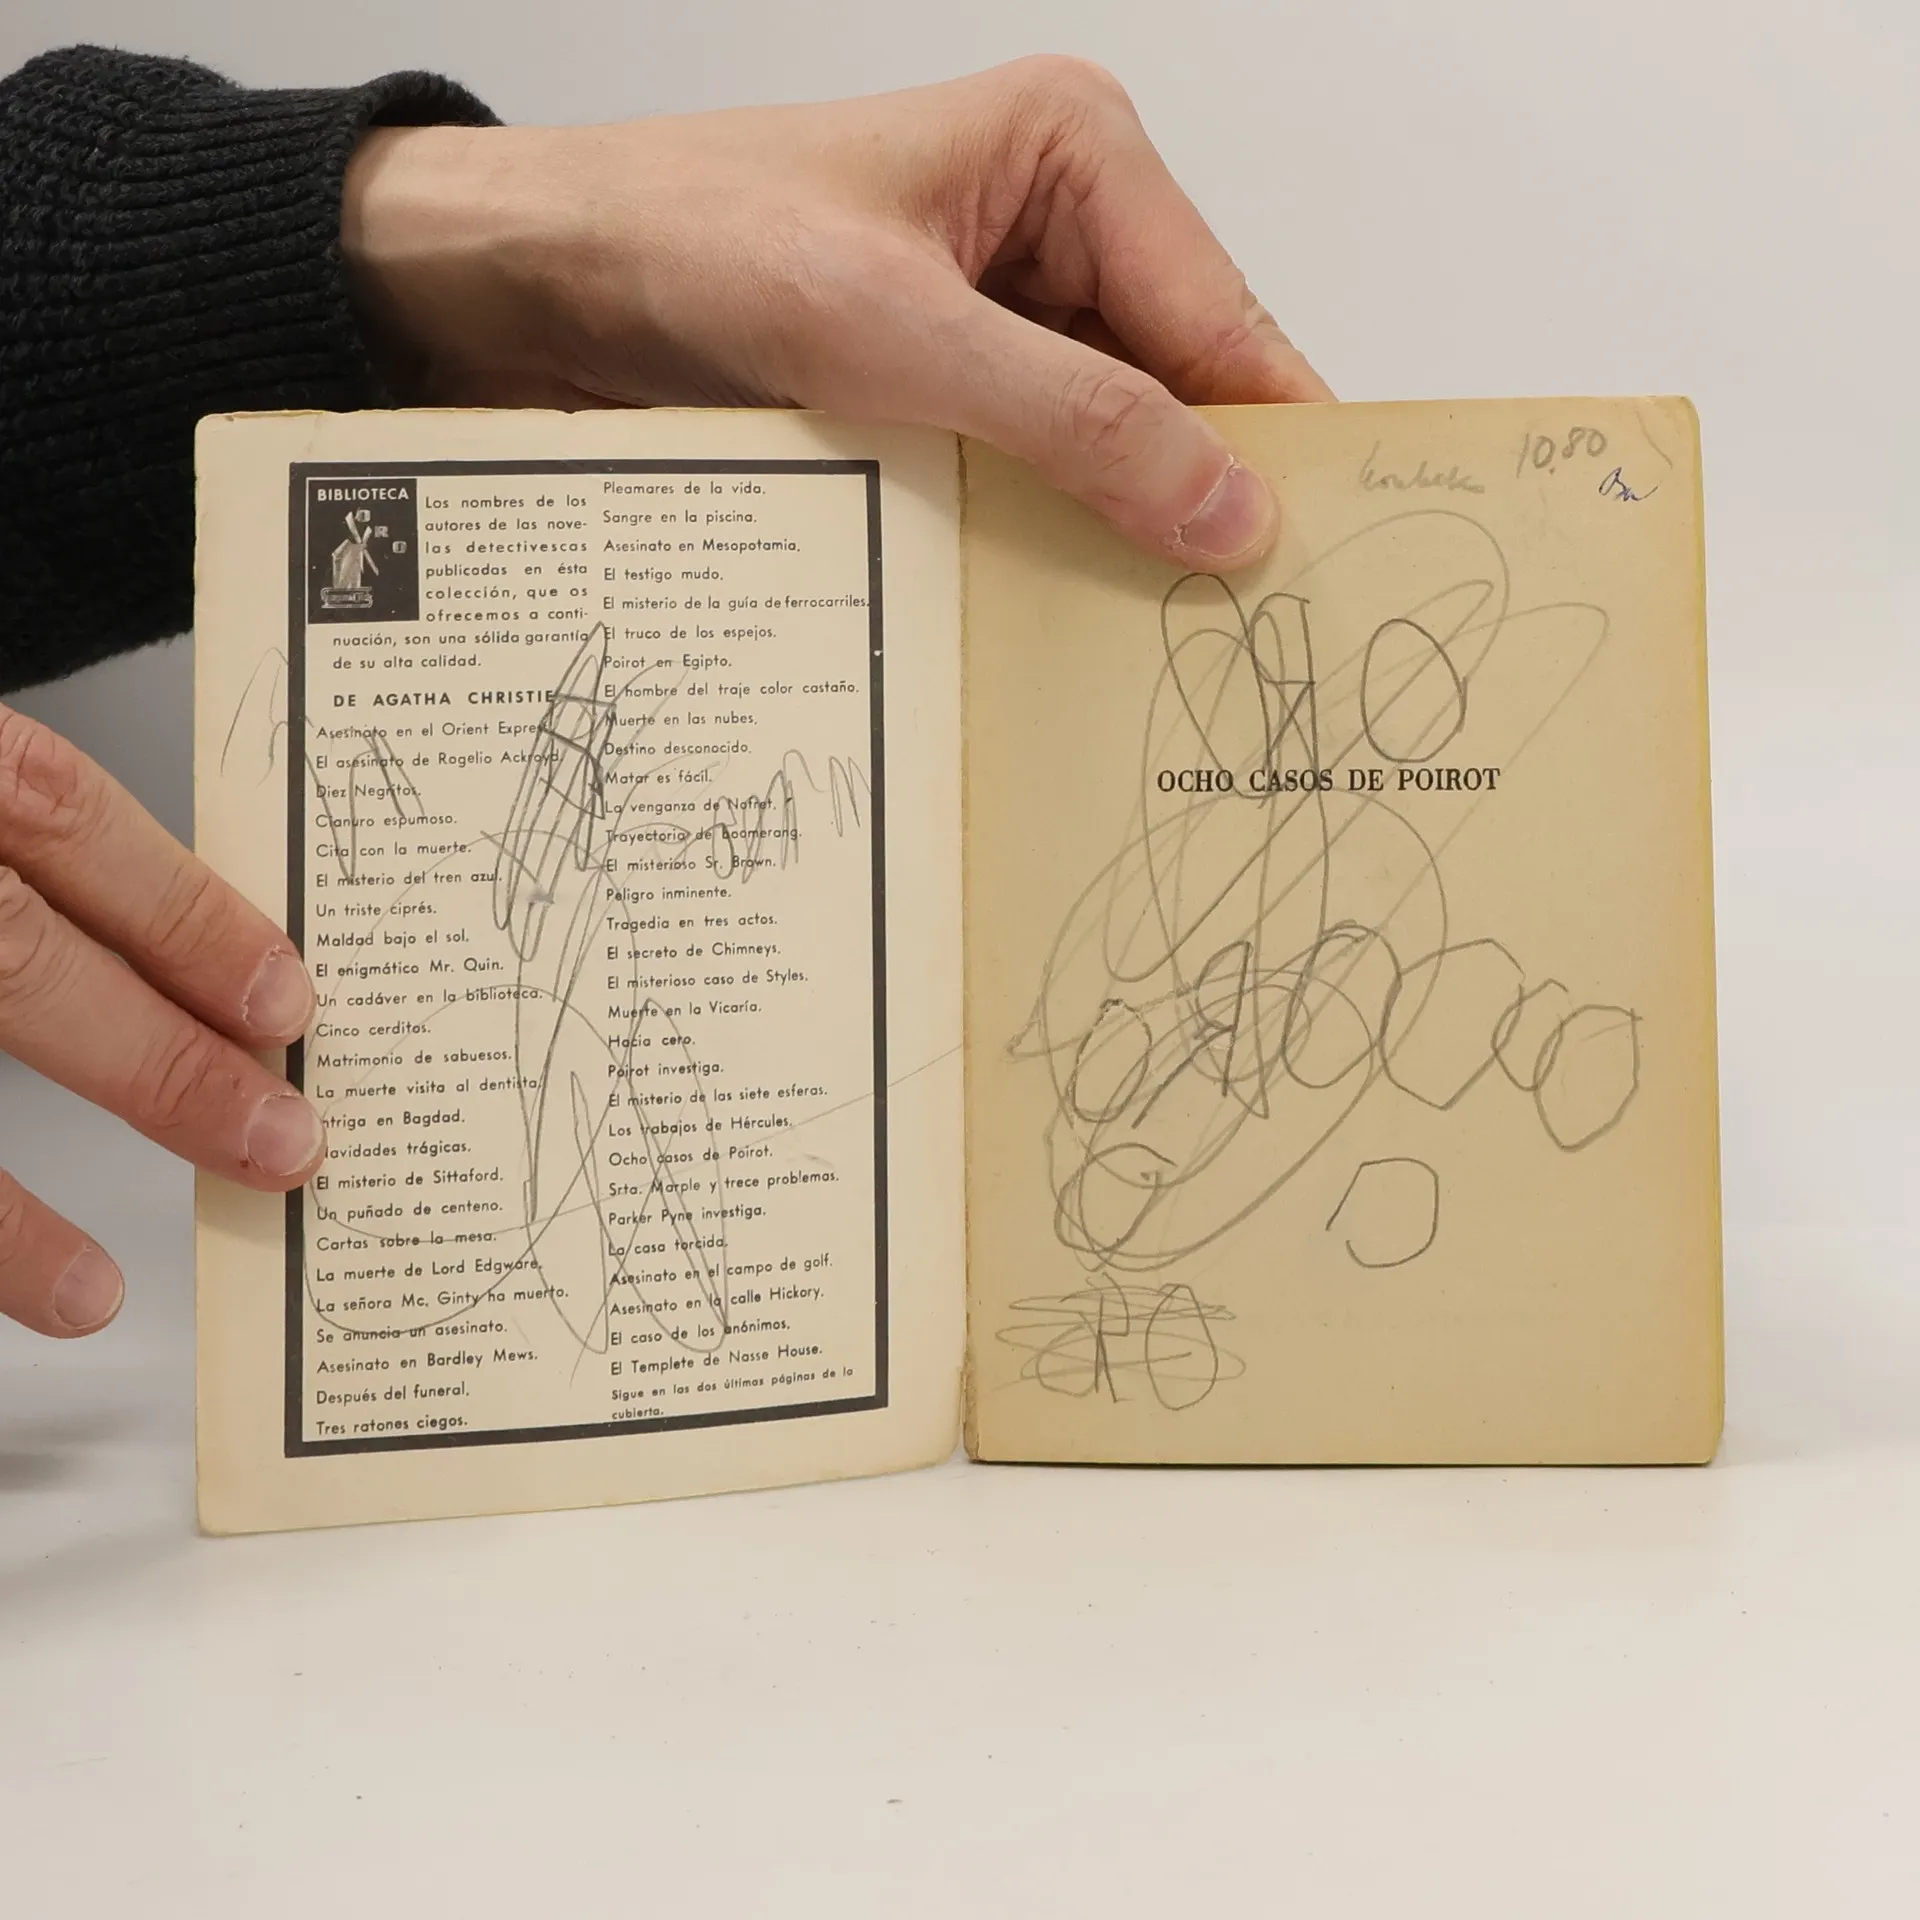 BIBLIOTECA
ORO
Los nombres de los
autores de las nove-
las detectivescas
publicadas en ésta
colección, que os
ofrecemos a conti-
nuación, son una sólida garantía
de su alta calidad.
DE AGATHA CHRISTIE
Asesinato en el Orient Expres
El asesinato de Rogelio Ackroyd.
Diez Negritos.
Cianuro espumoso.
Cita con la muerte.
El misterio del tren azul.
Un triste ciprés.
Maldad bajo el sol.
El enigmático Mr. Quin.
Un cadáver en la biblioteca.
Cinco cerditos.
Matrimonio de sabuesos.
La muerte visita al dentista.
ntriga en Bagdad.
avidades trágicas.
El misterio de Sittaford.
Un puñado de centeno.
Cartas sobre la mesa.
La muerte de Lord Edgware.
La señora Mc. Ginty ha muerto.
Se anuncia un asesinato.
Asesinato en Bardley Mews.
Después del funeral.
Tres ratones ciegos.
Pleamares de la vida.
Sangre en la piscina.
Asesinato en Mesopotamia.
El testigo mudo.
El misterio de la guía de ferrocarriles.
El truco de los espejos.
Poirot en Egipto.
El hombre del traje color castaño.
Muerte en las nubes.
Destino desconocido.
Matar es fácil.
La venganza de Nofret.
Trayectoria de boomerang.
El misterioso Sr. Brown.
Peligro inminente.
Tragedia en tres actos.
El secreto de Chimneys.
El misterioso caso de Styles.
Muerte en la Vicaría.
Hacia cero.
Poirot investiga.
El misterio de las siete esferas.
Los trabajos de Hércules.
Ocho casos de Poirot.
Srta. Marple y trece problemas.
Parker Pyne investiga.
La casa torcida.
Asesinato en el campo de golf.
Asesinato en la calle Hickory.
El caso de los anónimos.
El Templete de Nasse House.
Sigue en las dos últimas páginas de la
cubierta.
10.80
OCHO CASOS DE POIROT